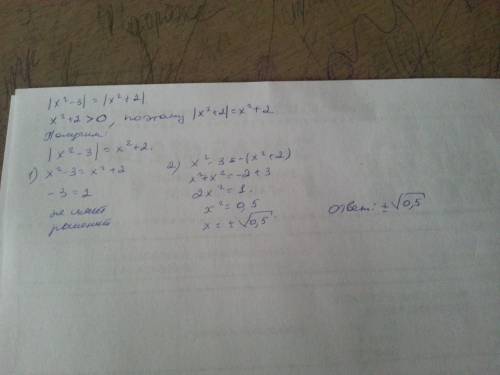 |x²-3| = |x²+2|
x²+2>0, поэтому |x²+2|=x²+2
Получим:
|x²-3| = x²+2.
1) x²-3=x²+2
-3=2
не имеет
решений
2) x²-3=-(x²+2)
x²+x²=-2+3
2x²=1.
x²=0,5
x=±√0,5.
Ответ: ±√0,5